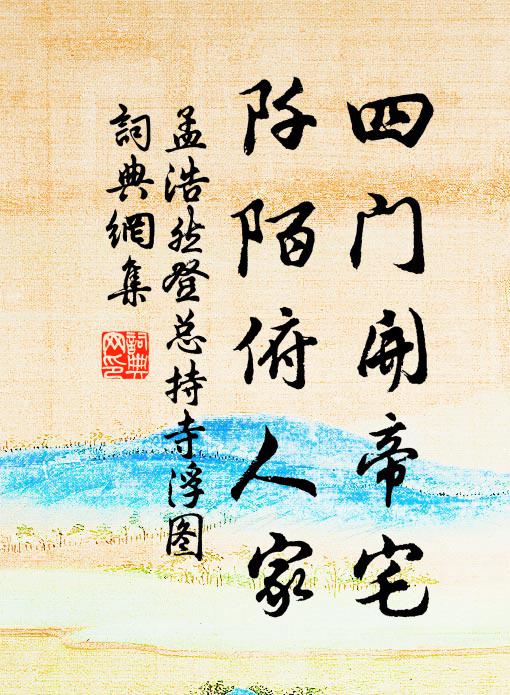 四门开帝宅
阡陌俯人家
孟浩然登总持寺浮图
詞典網集
詞典网印